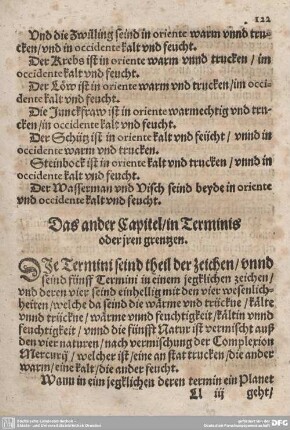 122
Vnd die Zwilling seind in oriente warm vnnd tru-
cken/vnd in occidente kalt vnd feucht.
Der Krebs ist in oriente warm vnnd trucken / im
occidente kalt vnd feucht.
Der Löw ist in oriente warm vnd trucken/im occi-
dente kalt vnd feucht.
Die Junckfraw ist in oriente warmechtig vnd tru-
cken/in occidente kalt vnd feucht.
Der Schütz ist in oriente kalt vnd feücht / vnnd in
occidente warm vnd trucken.
Steinbock ist in oriente kalt vnd trucken / vnnd in
occidente kalt vnd feucht.
Der Wasserman vnd Visch seind beyde in oriente
vnd occidente kalt vnd feucht.
Das ander Capitel/in Terminis
oder jren grentzen.
DJe Termini seind theil der zeichen/ vnnd
seind fünff Termini in einem jegklichen zeichen/
vnd deren vier seind einhellig mit den vier wesenlich-
heiten/welche da seind die wärme vnd trückne/kälte
vnnd trückne/ wärme vnnd feuchtigkeit/kältin vnnd
feuchtigkeit / vnnd die fünfft Natur ist vermischt auß
den vier naturen / nach vermischung der Complexion
Mercurij / welcher ist/eine an stat trucken/die ander
warm/eine kalt/die ander feucht.
Wann in ein jegklichen deren termin ein Planet
Ll iij geht/